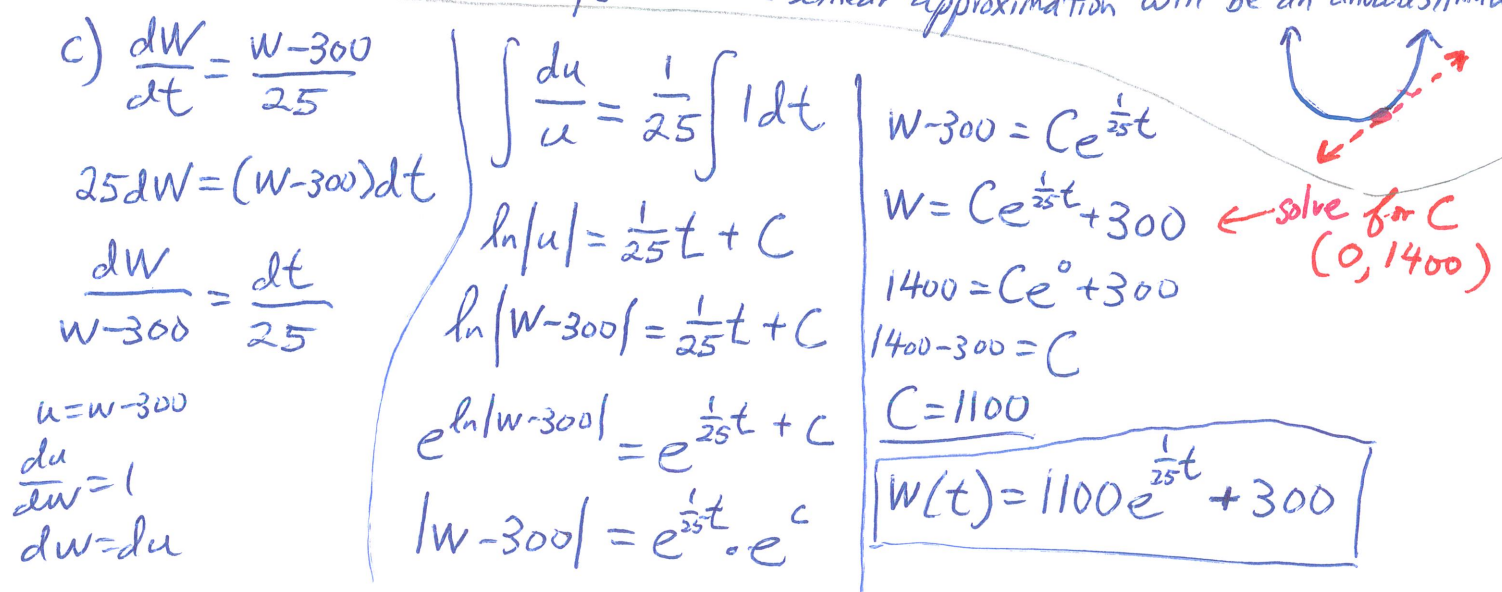 linear approximation will be an
c) dW/dt = W-300/25
25dW=(W-300)dt
dW/W-300 = dt/25
u=w-300
du/dw=1
dw=du
∫ du/u = 1/25 ∫ 1dt
ln|u|= 1/25 t + C
ln|W-300| = 1/25 t + C
e^ln|w-300| = e^1/25 t + C
|w-300| = e^1/25 t • e^c
W-300 = Ce^1/25 t
W= Ce^1/25 t +300 ← solve for C
(0,1400)
1400 = Ce^0 +300
1400-300 = C
C=1100
W(t)=1100e^1/25 t +300